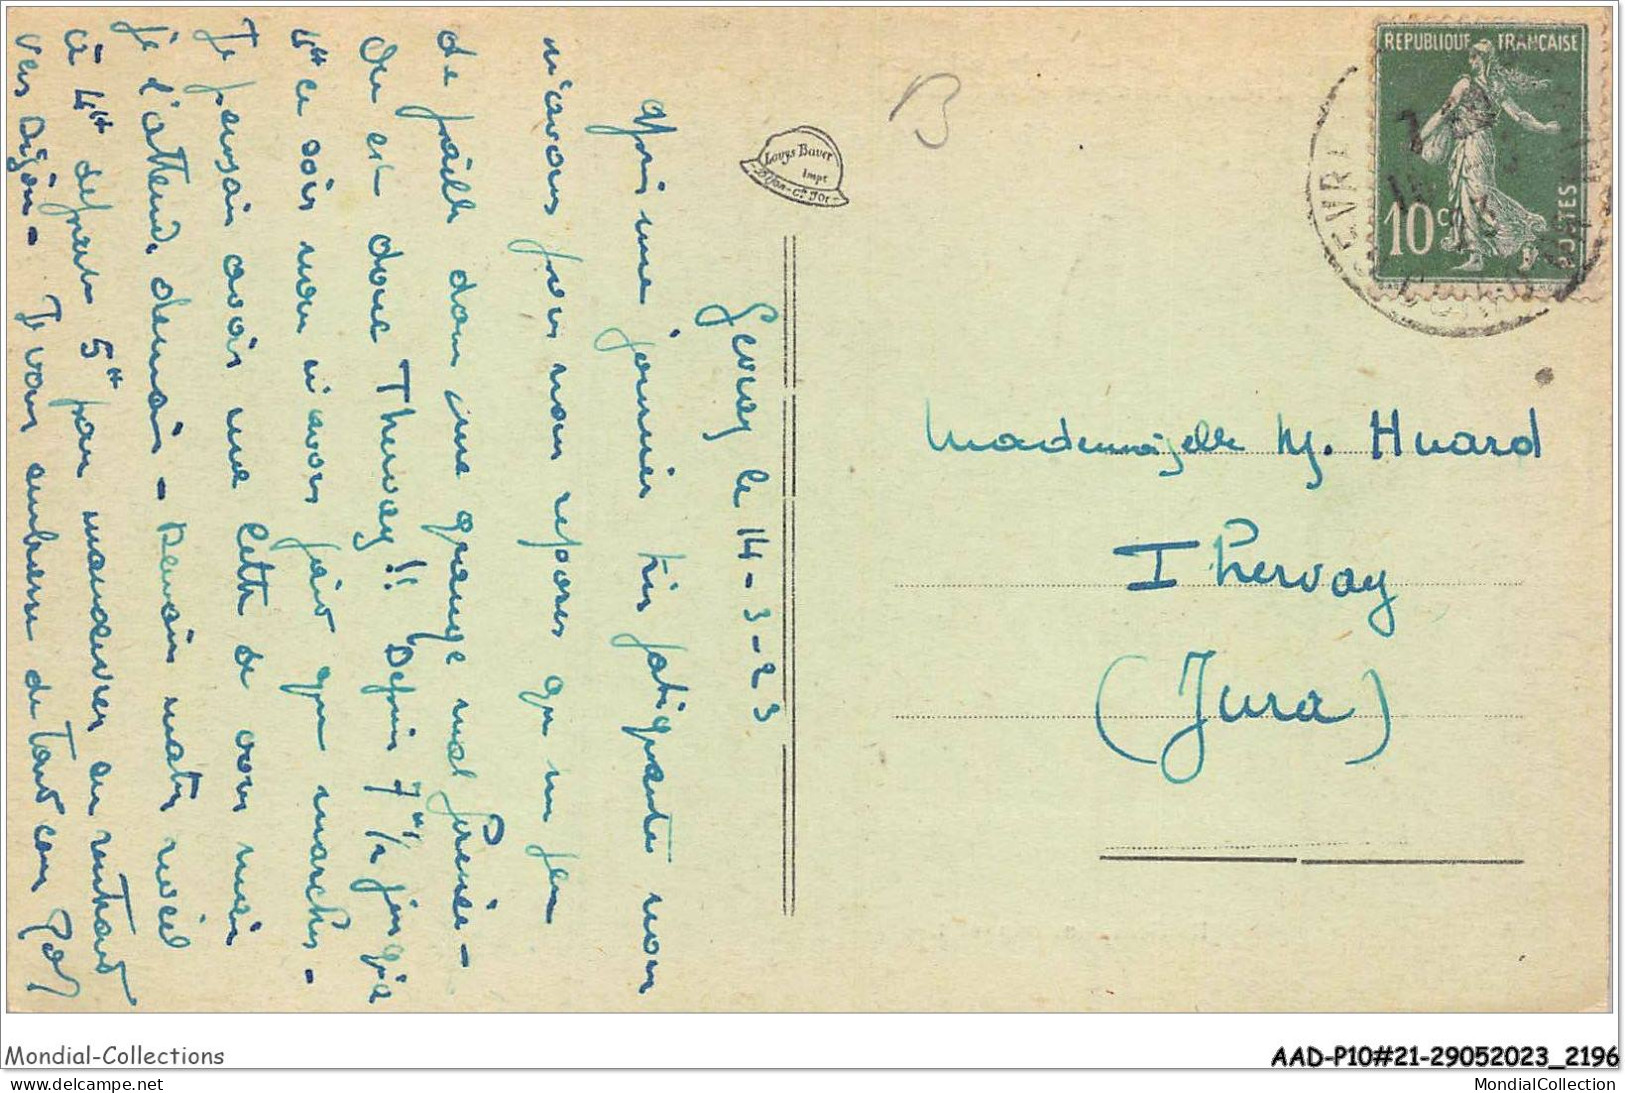 Gevrey le 14-3-23
Après une journée très fatigante nous
n'avons pour nous reposer qu'un peu
de paille dans une grange mal fermée -
Où est donc Thervay !! Depuis 7h 1/2 jusqu'à
4h ce soir nous n'avons fait que marcher -
Je pensais avoir une lettre de vous mais
je l'attends demain - Demain matin réveil
à 4h départ 5h pour manœuvrer en rentrant
vers Dijon - Je vous embrasse de tout cœur
B
Louys Bauer
Impr
Dijon - Cte d'Or
REPUBLIQUE FRANÇAISE
10c
POSTES
Mademoiselle M. Huard
Thervay
(Jura)
Mondial-Collections
AAD-P10#21-29052023_2196
www.delcampe.net
MondialCollection